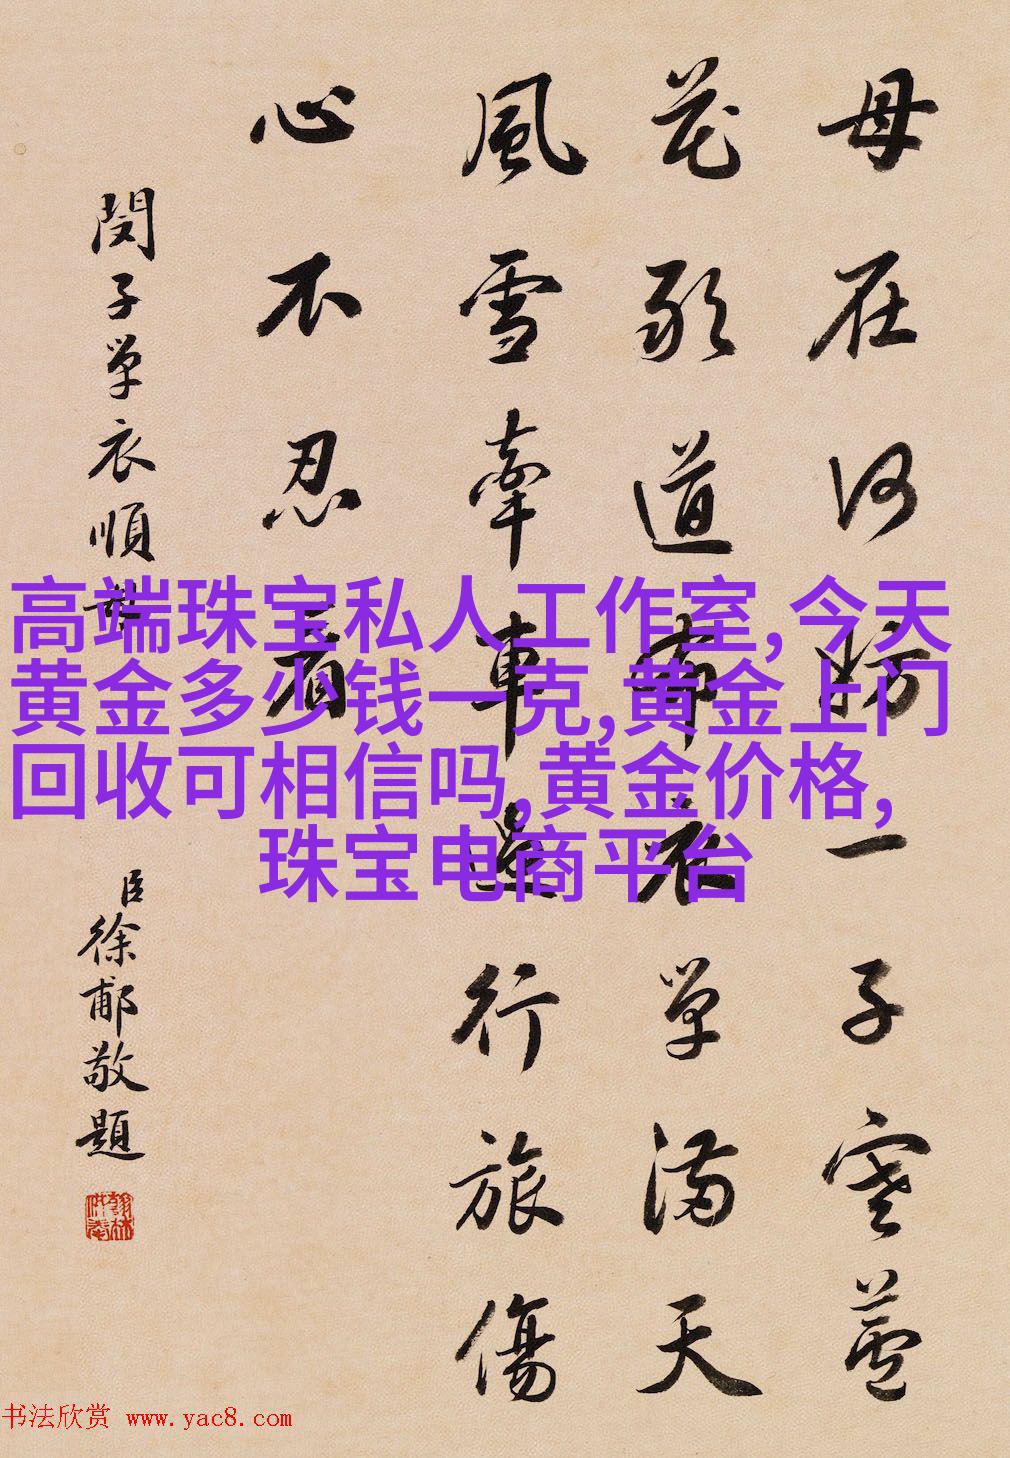 母在何妨一子寒蘆
花敢道布衣單滿天
風雪牽車還行旅傷
心不忍看
閔子單衣順母
臣徐郙敬題
高端珠宝私人工作室,今天
黄金多少钱一克,黄金上门
回收可相信吗,黄金价格,
珠宝电商平台
书法欣赏 www.yac8.com